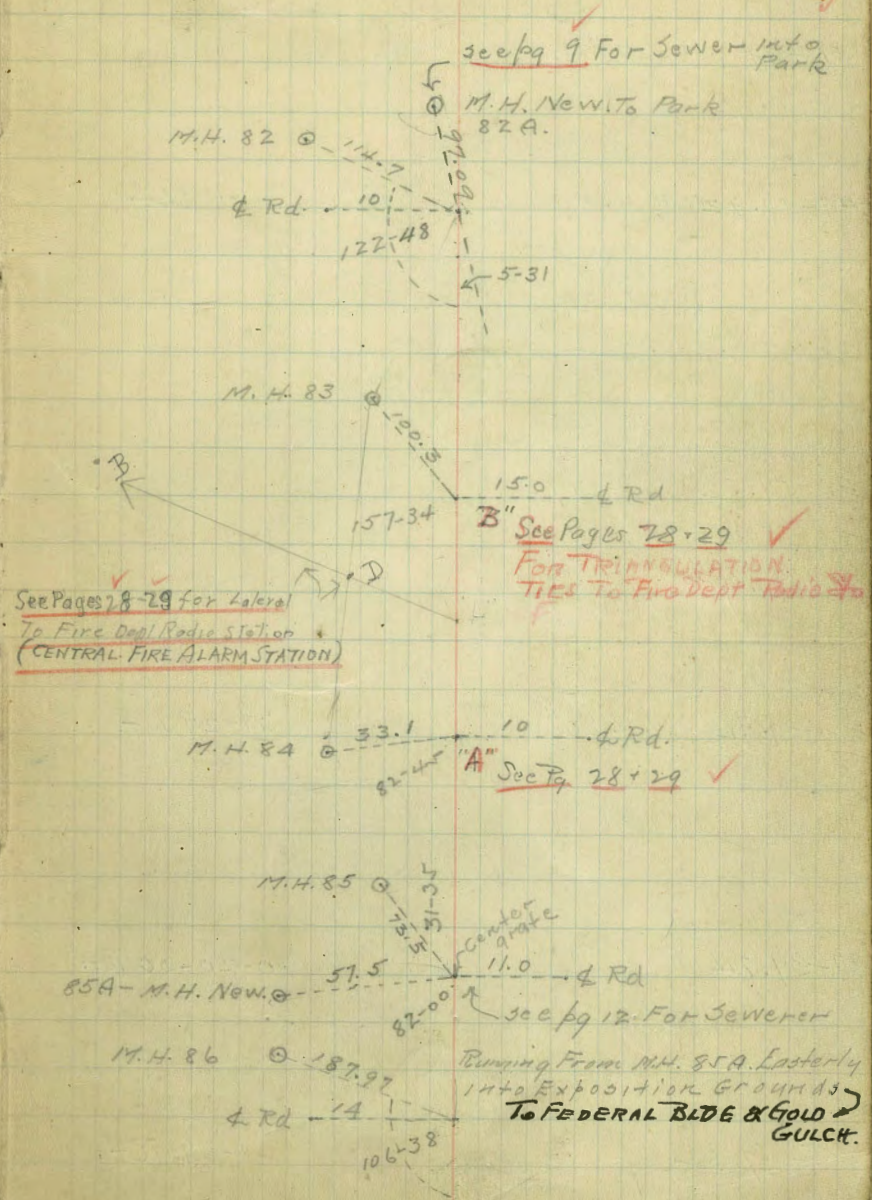 see pg 9 For Sewer into
Park
M.H. New. To Park
82 A.
M.H. 82
114.7
97.09
℄ Rd.
10
122-48
5-31
M.H. 83
100.3
B
15.0
℄ Rd
157-34
"B"
See Pages 28 + 29
For TRIANGULATION
TIES To Fire Dept Radio Sta
D
See Pages 28-29 for Lateral
To Fire Dept Radio Station
(CENTRAL FIRE ALARM STATION)
M.H. 84
33.1
10
℄ Rd.
82-45
"A"
See Pg 28 + 29
M.H. 85
73.5
31-35
Center
grate
85A - M.H. New.
57.5
11.0
℄ Rd
82-00
see pg 12. For Sewerer
M.H. 86
187.97
Running From M.H. 85A. Easterly
into Exposition Grounds
To FEDERAL BLDE & GOLD
GULCH.
℄ Rd
14
106-38